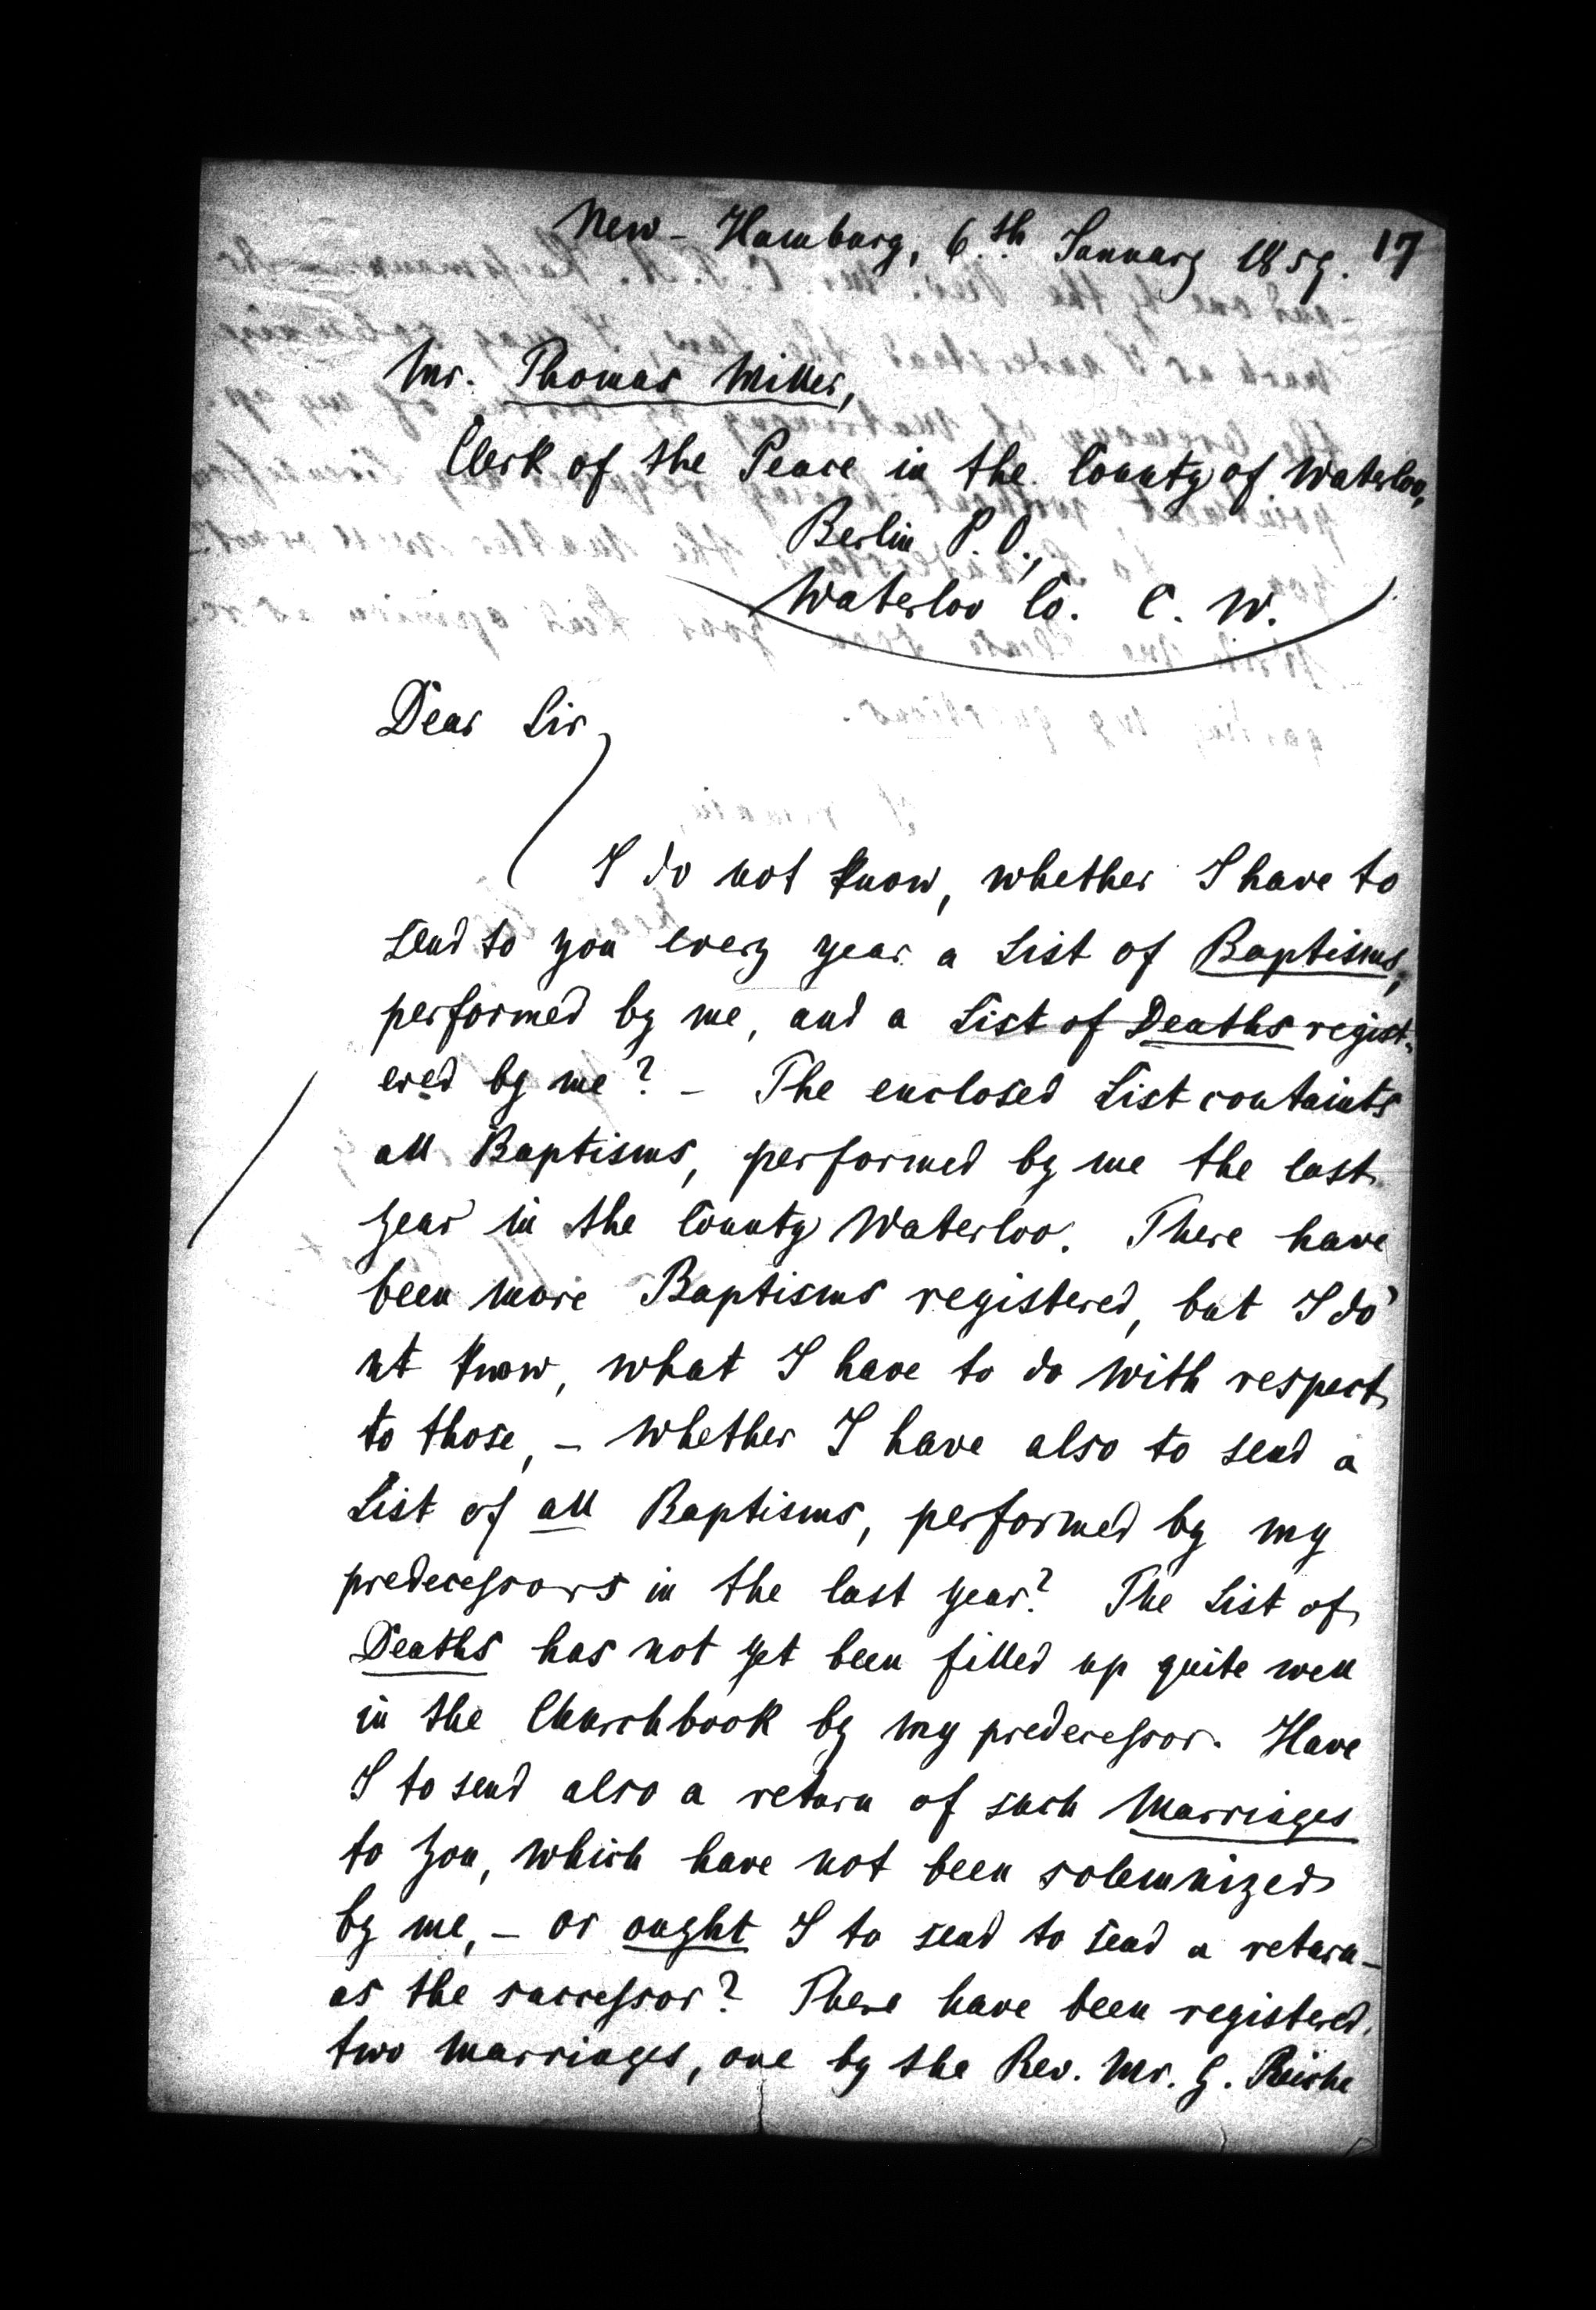 New-Hamburg, 6th January 1859. 17
Mr. Thomas Miller,
Clerk of the Peace in the County of Waterloo,
Berlin P. O.,
Waterloo Co. C. W.
Dear Sir,
I do not know, whether I have to
send to you every year a List of Baptisms,
performed by me, and a List of Deaths regist-
ered by me? – The enclosed List containts
all Baptisms, performed by me the last
year in the County Waterloo. There have
been more Baptisms registered, but I do
nt know, what I have to do with respect
to those, – whether I have also to send a
List of all Baptisms, performed by my
predecessors in the last year? The List of
Deaths has not yet been filled up quite well
in the Churchbook by my predecessor. Have
I to send also a return of such Marriages
to you, which have not been solemnized
by me, – or ought I to send to send a return –
as the successor? There have been registered
two marriages, one by the Rev. Mr. G. Reiche